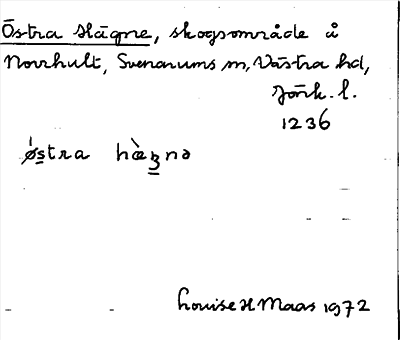 Östra Hägne, skogsområde å
Norrhult, Svenarums sn, Västra hd,
Jönk. l.
1236
ǿstra hæ̀ʒnə
Louise H Maas 1972